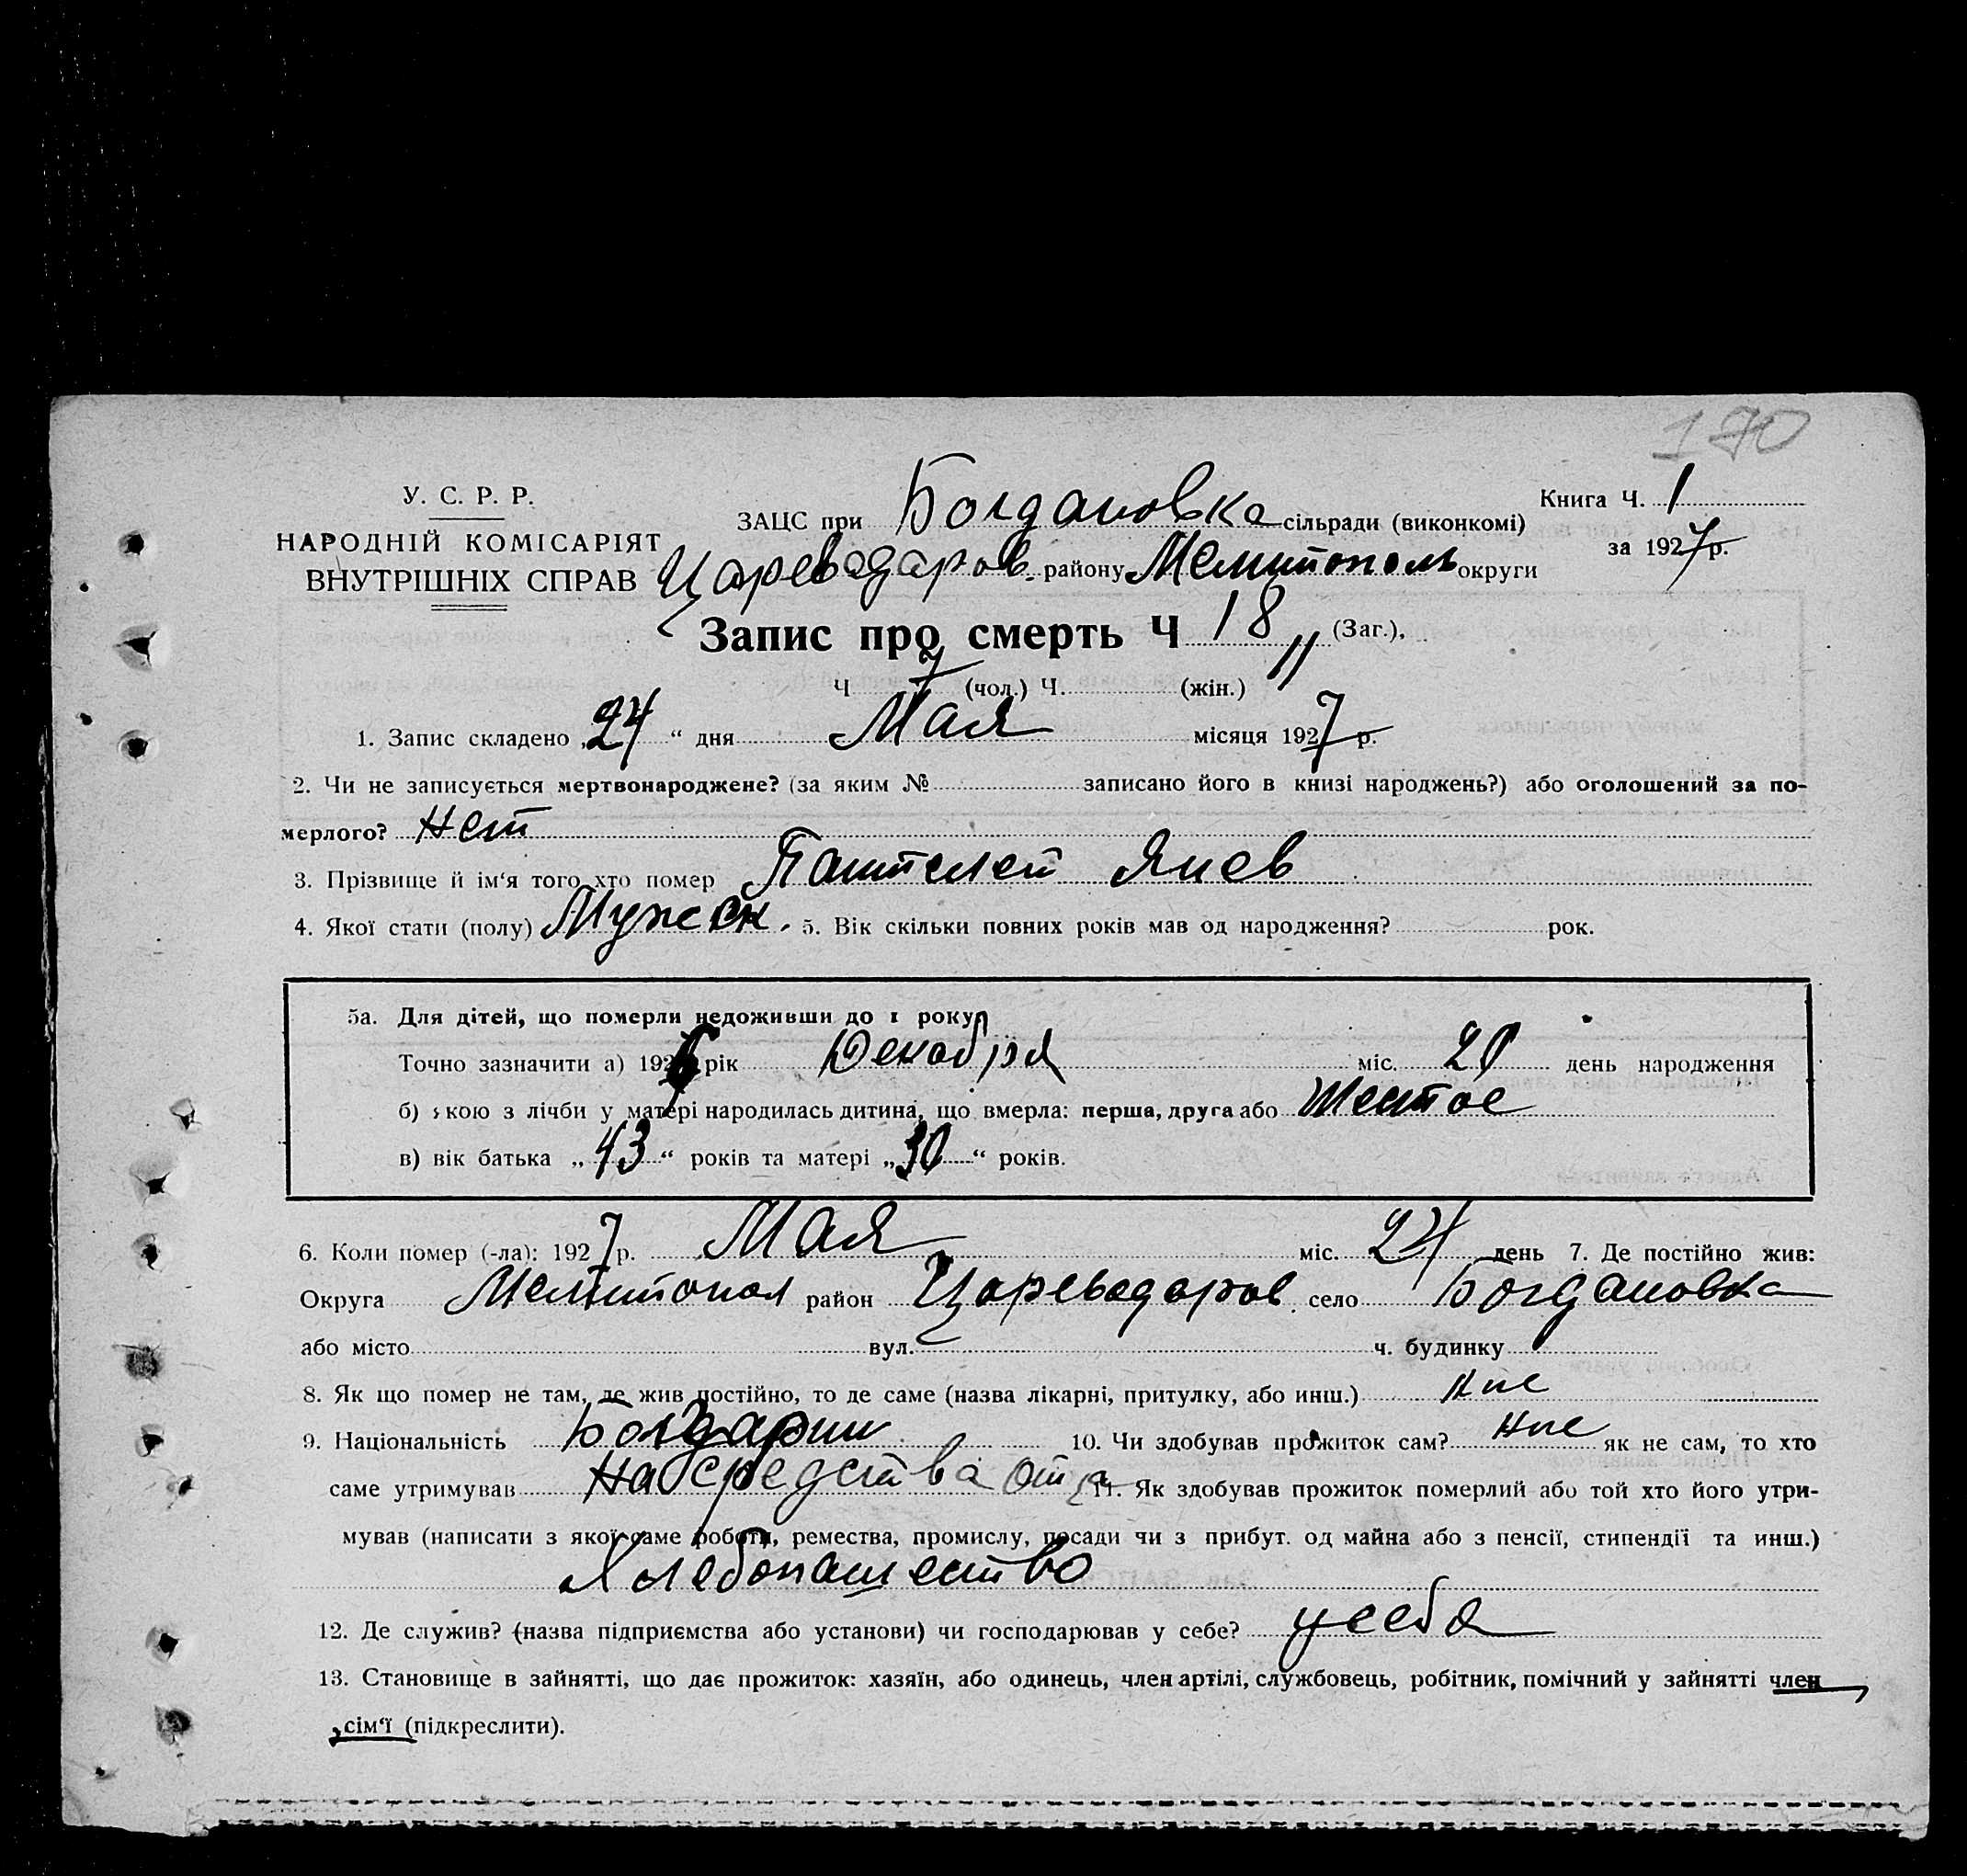 170
У. С. Р. Р.
НАРОДНІЙ КОМІСАРІЯТ
ВНУТРІШНІХ СПРАВ
ЗАЦС при Богдановка сільради (виконкомі)
Книга Ч. 1
Цареводаров. району Мелитополь округи
за 1927 р.
Запис про смерть Ч 18 (Заг.),
Ч 7 (чол.) Ч. " (жін.)
1. Запис складено „24“ дня Мая місяця 1927 р.
2. Чи не записується мертвонароджене? (за яким № записано його в книзі народжень?) або оголошений за по-
мерлого? нет
3. Прізвище й ім‘я того хто помер Пантелей Янев
4. Якої стати (полу) Мужеск. 5. Вік скільки повних років мав од народження? рок.
5а. Для дітей, що померли недоживши до 1 року
Точно зазначити а) 1926 рік Декабря міс. 20 день народження
б) якою з лічби у матері народилась дитина, що вмерла: перша, друга або шестое
в) вік батька „43“ років та матері „30“ років.
6. Коли помер (-ла): 1927 р. Мая міс. 24 день 7. Де постійно жив:
Округа Мелитопол район Цареводаров. село Богдановка
або місто вул. ч. будинку
8. Як що помер не там, де жив постійно, то де саме (назва лікарні, притулку, або инш.)
9. Національність 10. Чи здобував прожиток сам? як не сам, то хто
саме утримував на средства отца 11. Як здобував прожиток померлий або той хто його утри-
мував (написати з якої саме роботи, ремества, промислу, посади чи з прибут. од майна або з пенсії, стипендії та инш.)
Хлебопашество
12. Де служив? (назва підприємства або установи) чи господарював у себе? у себя
13. Становище в зайнятті, що дає прожиток: хазяїн, або одинець, член артілі, службовець, робітник, помічний у зайнятті член
сім‘ї (підкреслити).